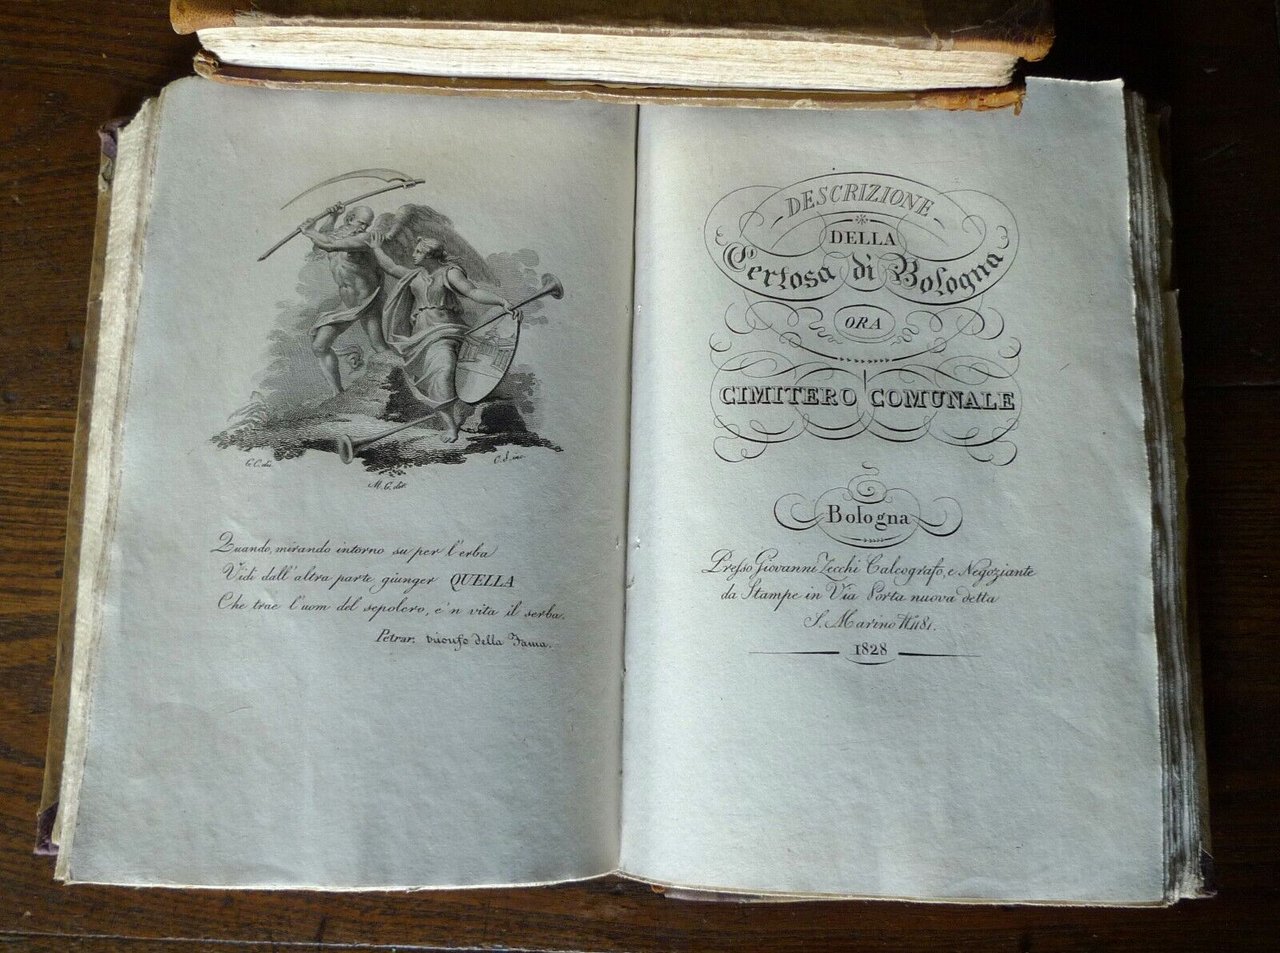 G. C. dis.
C. S. inc.
M. G. dir.
Quando, mirando intorno su per l'erba
Vidi dall'altra parte giunger QUELLA
Che trae l'uom del sepolcro, e 'n vita il serba.
Petrar. trionfo della Fama.
DESCRIZIONE
DELLA
Certosa di Bologna
ORA
CIMITERO COMUNALE
Bologna
Presso Giovanni Zecchi Calcografo, e Negoziante
da Stampe in Via Porta nuova detta
S. Marino N. 1181.
1828